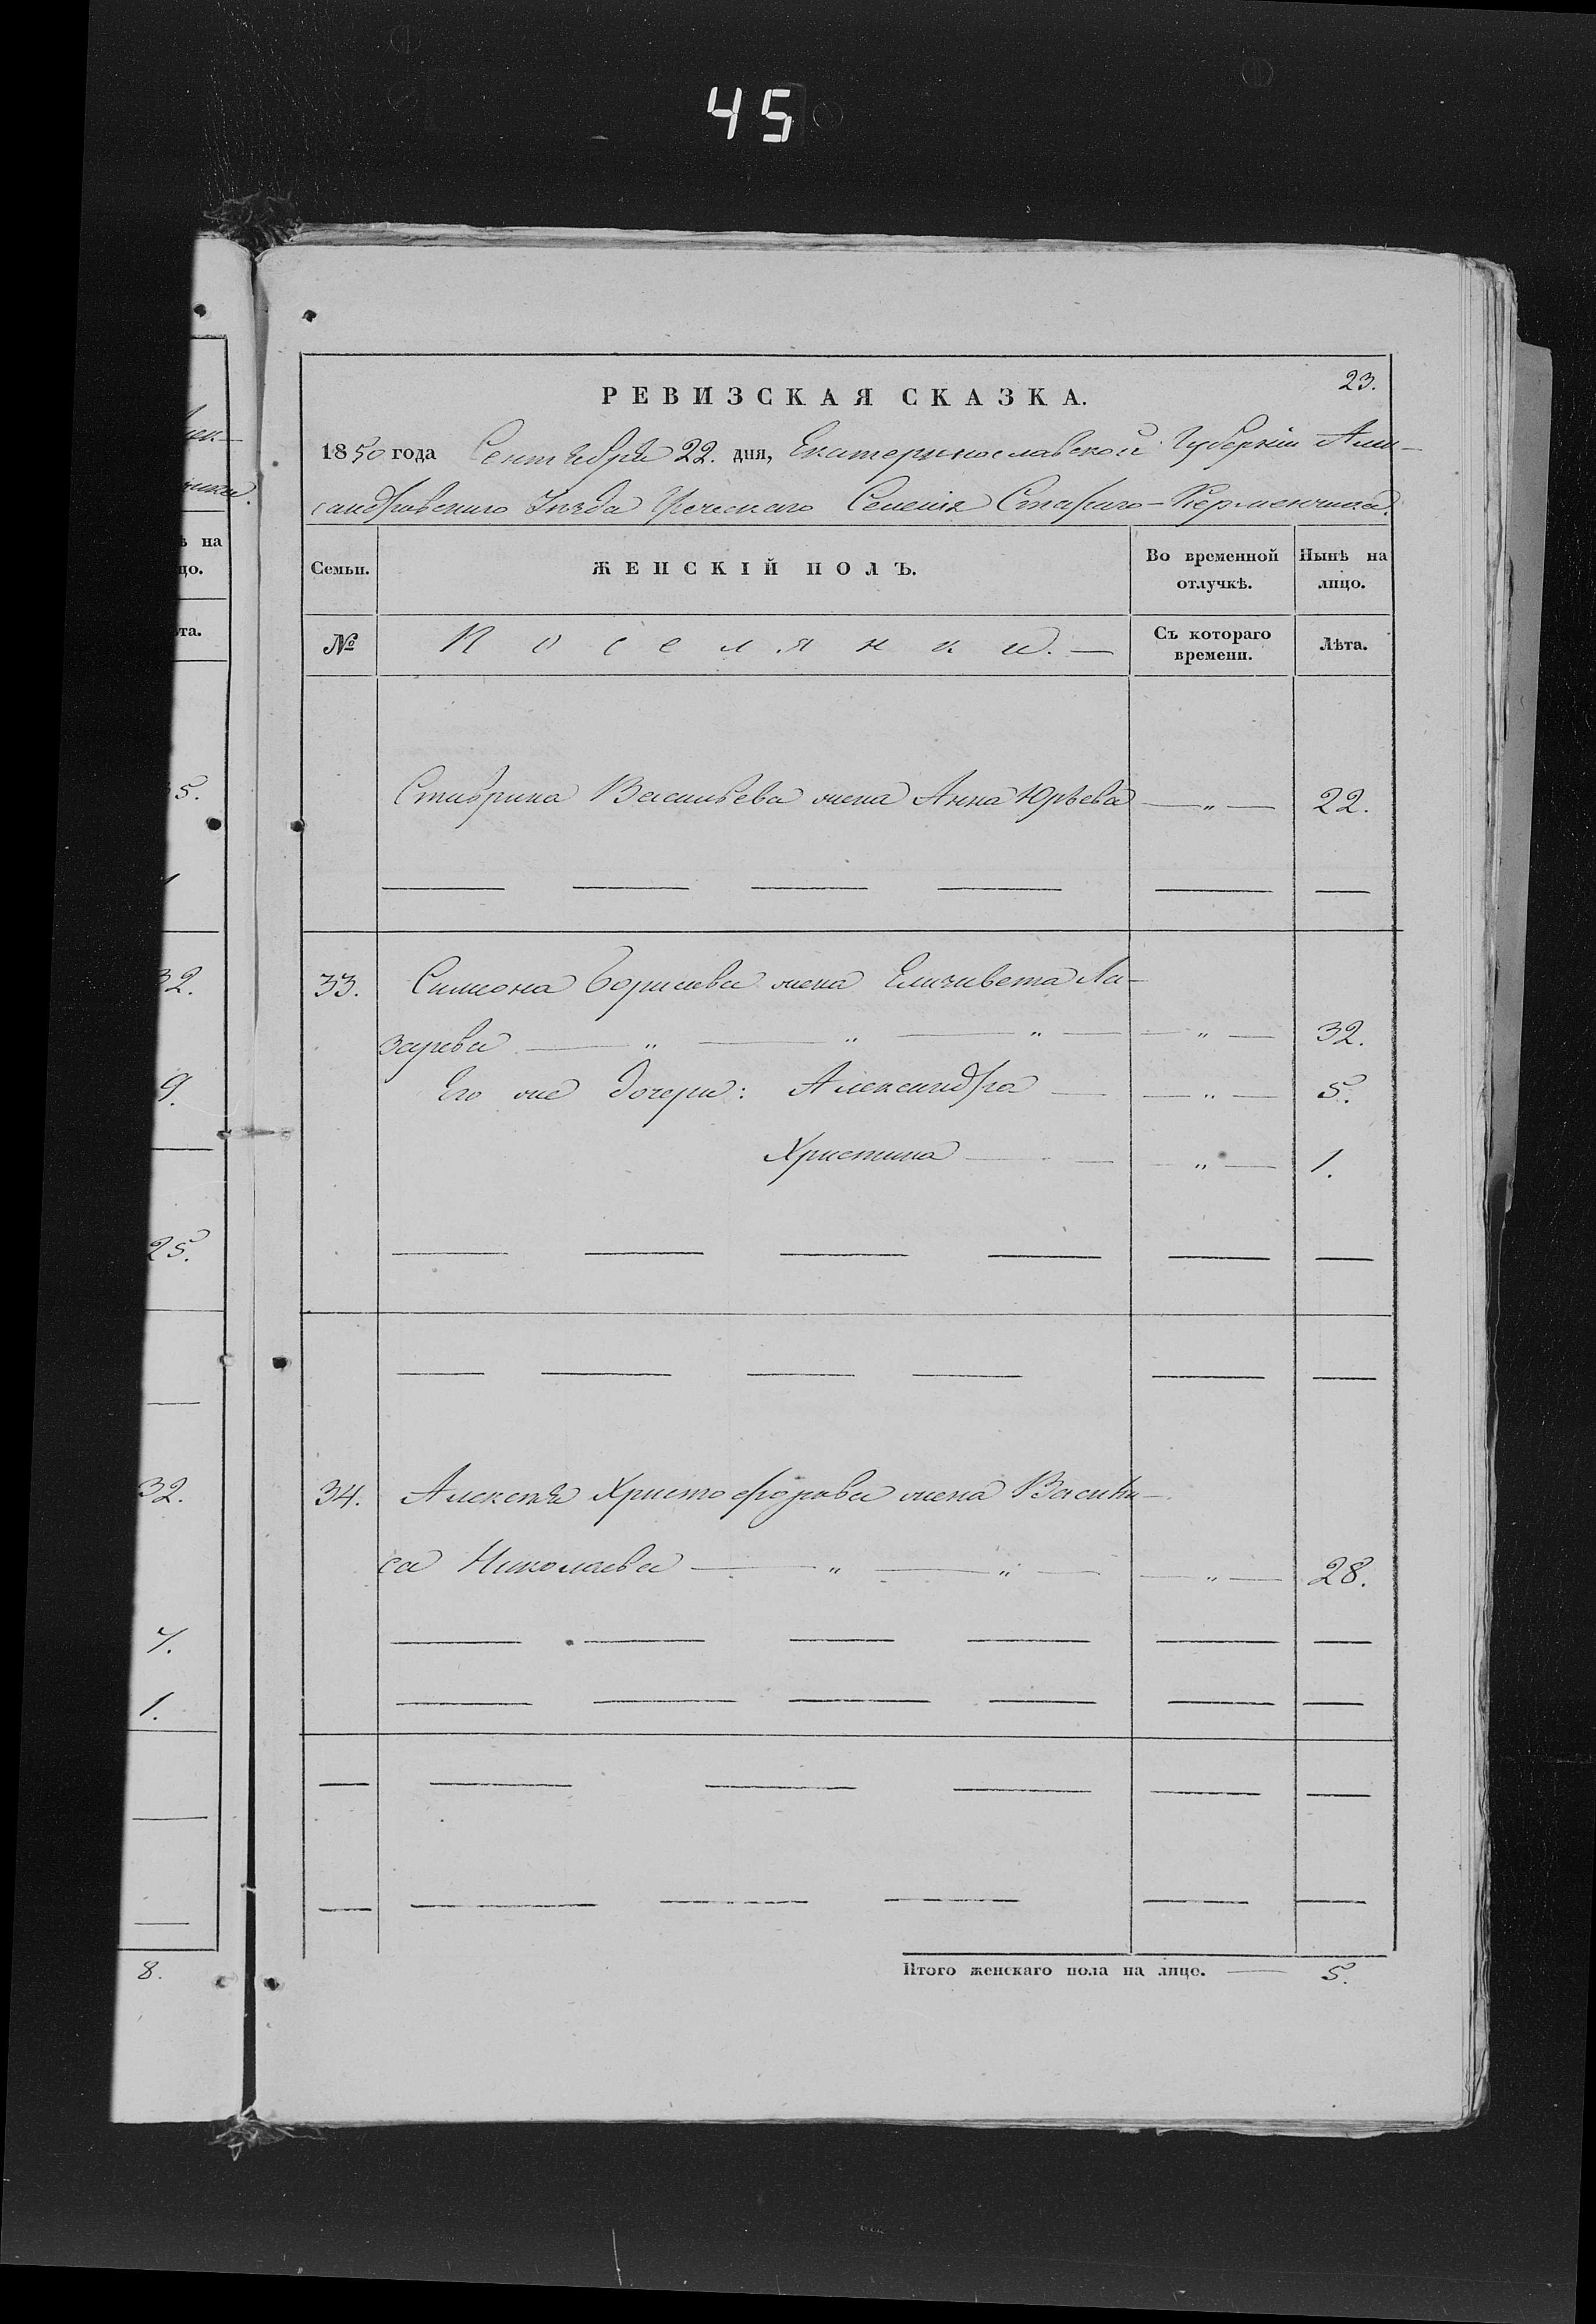 45
23.
РЕВИЗСКАЯ СКАЗКА.
1850 года Сентября 22. дня, Екатеринославской Губерніи Алек-
сандровскаго Уѣзда Греческаго Селенія Стараго-Керменчика.
Семьи. ЖЕНСКІЙ ПОЛЪ. Во временной отлучкѣ. Нынѣ на лицо.
№ Поселянки. — Съ котораго времени. Лѣта.
Ставрина Васильева жена Анна Юрьева — " — 22.
33. Симеона Борисова жена Елизавета Ла-
зарева — " — " — " — — " — 32.
Его же дочери: Александра — — " — 5.
Христина — — — " — 1.
34. Алексѣя Христофорова жена Васили-
са Николаева — " — " — — " — 28.
Итого женскаго пола на лицо. — 5.
ѣ на
цо.
ѣта.
5.
32.
9.
25.
32.
7.
1.
8.